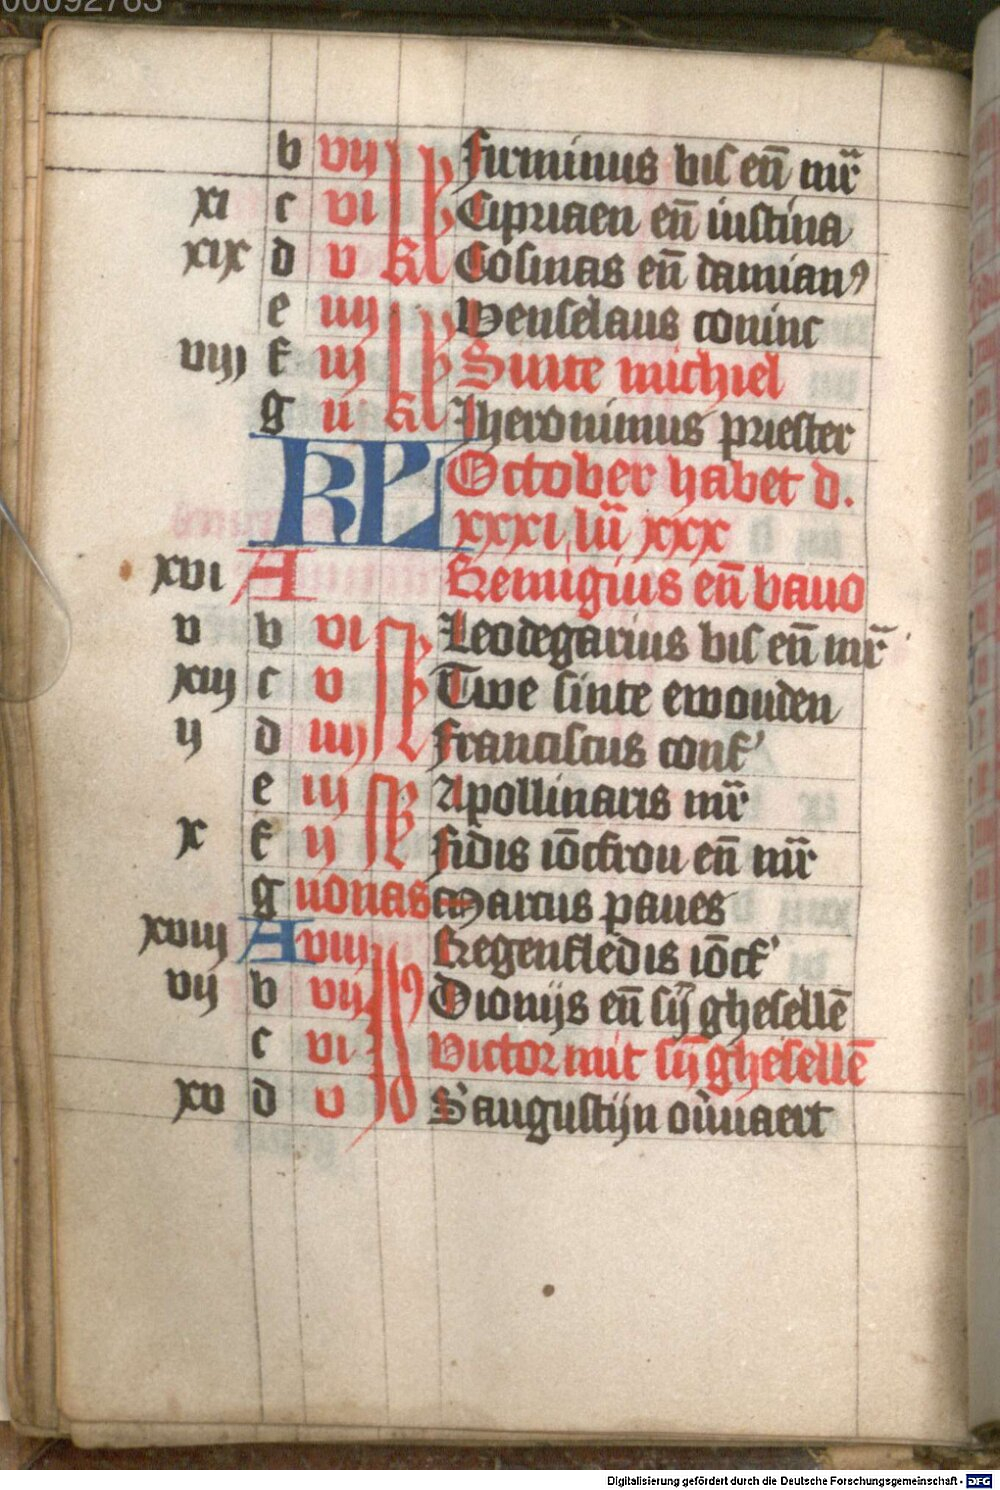 00092763
b vij Firminus bisc en̄ mr̄
xi c vi kł Cipriaen en̄ iustina
xix d v kł Cosmas en̄ damianꝰ
e iiij Wenselaus coninc
viij f iij Sinte michiel
g ii kł Iheronimus priester
KL October habet d.
xxxi lū xxx
xvi A Remigius en̄ bavo
v b vi Leodegarius bisc en̄ mr̄
xiij c v Twe sinte ewouden
ij d iiij Franciscus conf'
e iij Apollinaris mr̄
x f ij Fidis iōcfrou en̄ mr̄
g nonas Marcus paues
xviij A viij Regenfledis iōcf'
vij b vij Dionijs en̄ sij̄ ghesellē
c vi Victor mit sij̄ ghesellē
xv d v S' augustijn ov̄uaert
Digitalisierung gefördert durch die Deutsche Forschungsgemeinschaft - DFG